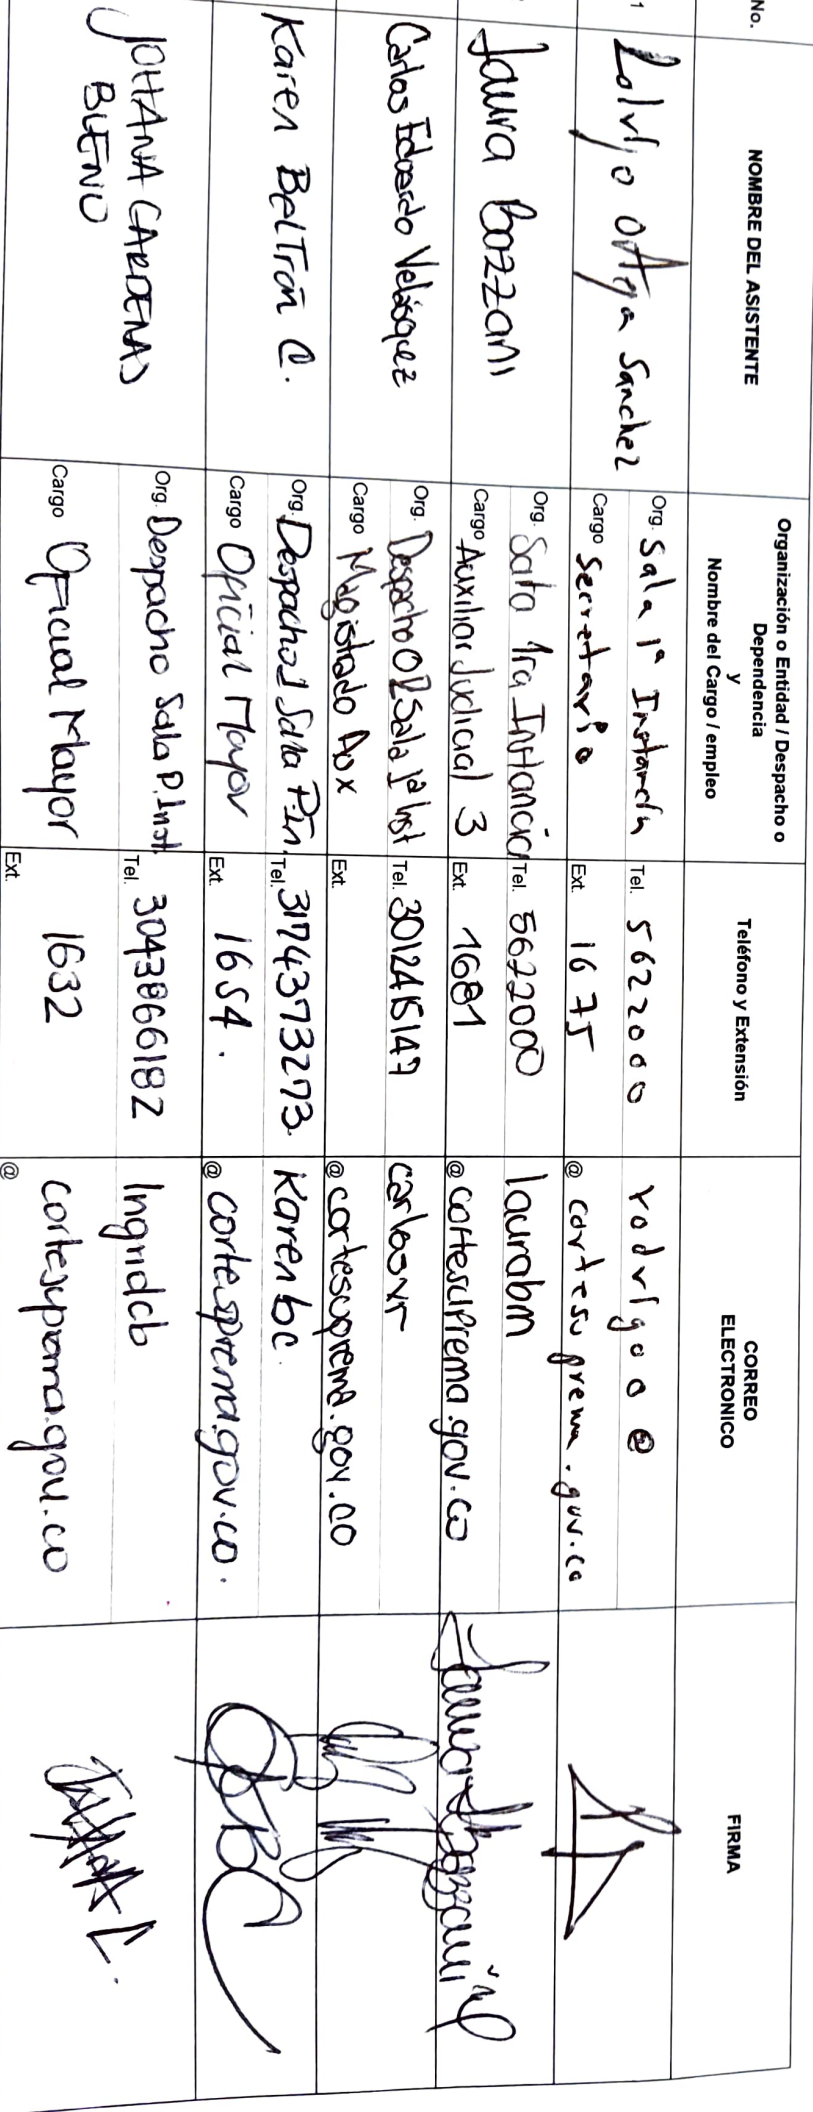 No.
NOMBRE DEL ASISTENTE
Organización o Entidad / Despacho o
Dependencia
y
Nombre del Cargo / empleo
Teléfono y Extensión
CORREO
ELECTRONICO
FIRMA
1
Ortega Sanchez
Org. Sala 1ª Instancia
Cargo Secretario
Tel. 5622000
Ext. 1675
rodrigoo@
@ cortesuprema.gov.co
Laura Bozzani
Org. Sala 1ra Instancia
Cargo Auxiliar Judicial 3
Tel. 5622000
Ext. 1681
laurabm
@ cortesuprema.gov.co
Carlos Eduardo Velásquez
Org. Despacho 02 Sala 1ª Inst
Cargo Magistrado Aux
Tel. 
Ext.
carlosvr
@ cortesuprema.gov.co
Karen Beltrán C.
Org. Despacho 1 Sala P.In.
Cargo Oficial Mayor
Tel. 3174373273.
Ext. 1654.
Karenbc.
@ cortesuprema.gov.co.
JOHANA CARDENAS
BUENO
Org. Despacho Sala P.Inst
Cargo Oficial Mayor
Tel. 3043866182
1632
Ext.
Ingridcb
cortesuprema.gov.co
@